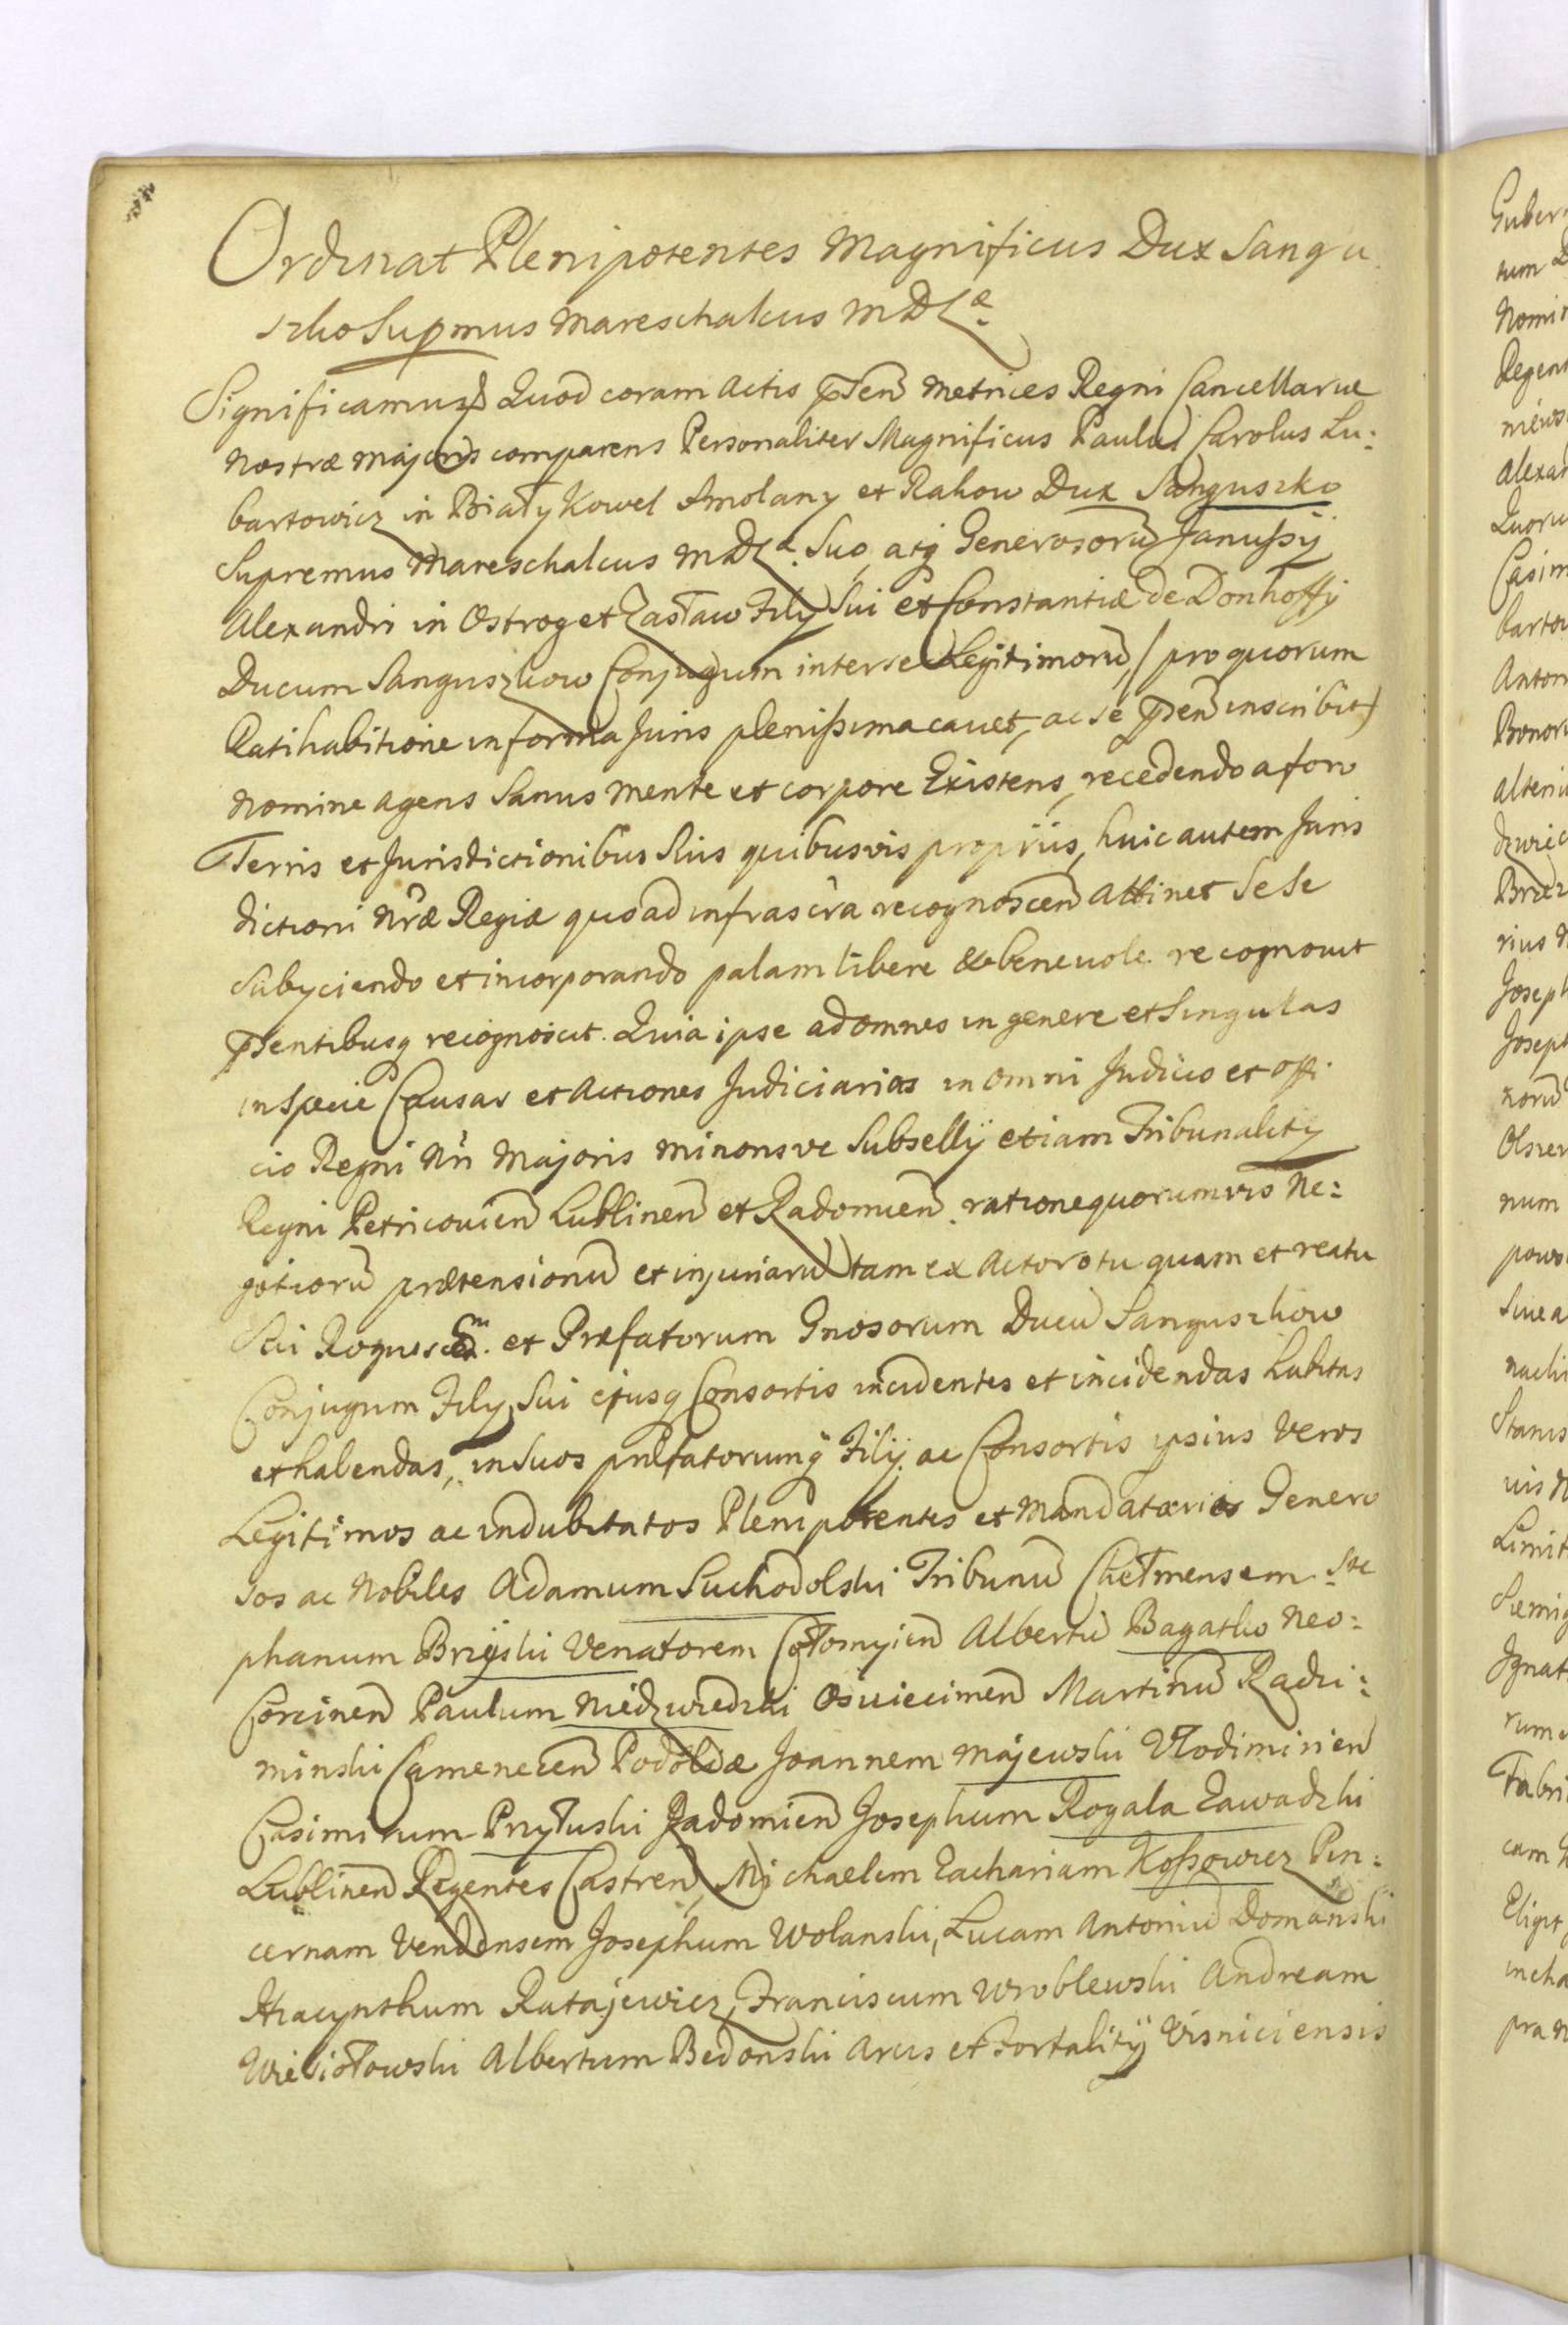 Ordinat Plenipotentes Magnificus Dux Sangu
szko Supmus Mareschalcus M D L æ
Significamus Quod coram Actis pñten Metrices Regni Cancellariæ
nostræ majoris comparens Personaliter Magnificus Paulus Carolus Lu:
bartowicz in Biały Kowel Smolany et Rakow Dux Sanguszko
Supremus Mareschalcus M D L æ. Suo, atq Generosorũ Janussij
Alexandri in Ostrog et Zasław Filij Sui et Constantiæ de Donhoffij
Ducum Sanguszkow Conjugum inter se Legitimorũ, / pro quorum
Ratihabitione in forma Juris plenissima cauet, ac se pñten inscribit /
nomine agens Sanus mente et corpore Existens, recedendo a foro
Terris et Jurisdictionibus Suis quibusvis propriis, huic autem Juris
dictioni Nræ Regiæ quo ad infrascra recognoscen attinet Se Se
subyciendo et incorporando palam libere & benevole recognovit
pñtentibusq recognoscit. Quia ipse ad omnes in genere et Singulas
in Specie Causas et Actiones Judiciarias in omni Judicio et offi
cio Regni Nri Majoris minorisve Subsellij etiam Tribunalitij
Regni Petricovien Lublinen et Radomien. ratione quorumvis Ne:
gotiorũ prætensionũ et injuriarũ tam ex Actoratu quam et reatu
Sui et Præfatorum Gnosorum Ducũ Sanguszkow
Conjugum Filij Sui ejusq Consortis incidentes et incidendas habitas
et habendas, in Suos præfatorumq Filij ac Consortis ipsius veros
Legitimos ac indubitatos Plenipotentes et Mandatarios Genero
sos ac Nobiles Adamum Suchodolski Tribunũ Chełmensem Ste
phanum Brijski Venatorem Cołomyien Albertũ Bagatko Neo:
Corcinen Paulum Niedzwiedzki Osviecimen Martinũ Radzi:
minski Camenecen Podoliæ Joannem Majewski Vłodimirien
Casimirum Pryłuski Radomien Josephum Rogala Zawadzki
Lublinen Regentes Castren, Michaelem Zachariam Kossowicz Pin:
cernam Vendensem Josephum Wolanski, Lucam Antoniũ Domanski
Hiacynthum Ratajewicz, Franciscum Wroblewski Andream
Wiesiołowski Albertum Bedonski Arcis et Fortalitij Visniciensis